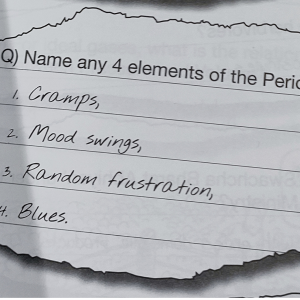 Q) Name any 4 elements of the
1. Cramps,
2. Mood swings,
3. Random frustration,
4. Blues.